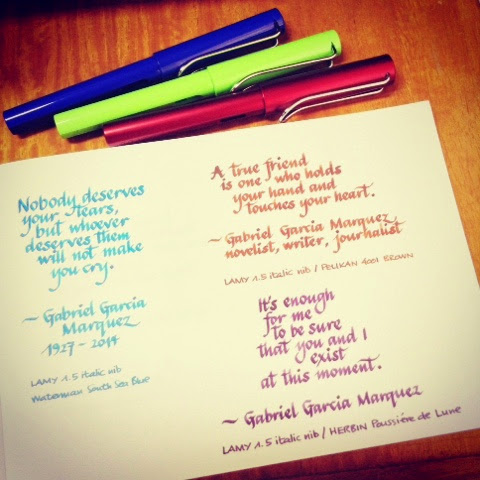 Nobody deserves
your tears,
but whoever
deserves them
will not make
you cry.
~ Gabriel Garcia
Marquez
1927 - 2014
LAMY 1.5 italic nib
Waterman South Sea Blue
A true friend
is one who holds
your hand and
touches your heart.
~ Gabriel Garcia Marquez,
novelist, writer, journalist
LAMY 1.5 italic nib / PELIKAN 4001 BROWN
It's enough
for me
to be sure
that you and I
exist
at this moment.
~ Gabriel Garcia Marquez
LAMY 1.5 italic nib / HERBIN Poussière de Lune